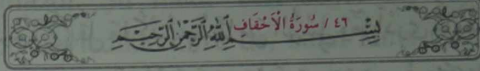 ٤٦ / سُورَةُ الْأَحْقَافِ
بِسْمِ اللَّهِ الرَّحْمَٰنِ الرَّحِيمِ